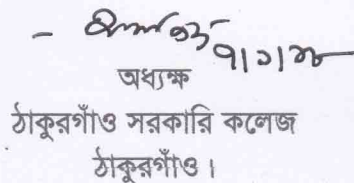 অধ্যক্ষ
ঠাকুরগাঁও সরকারি কলেজ
ঠাকুরগাঁও।